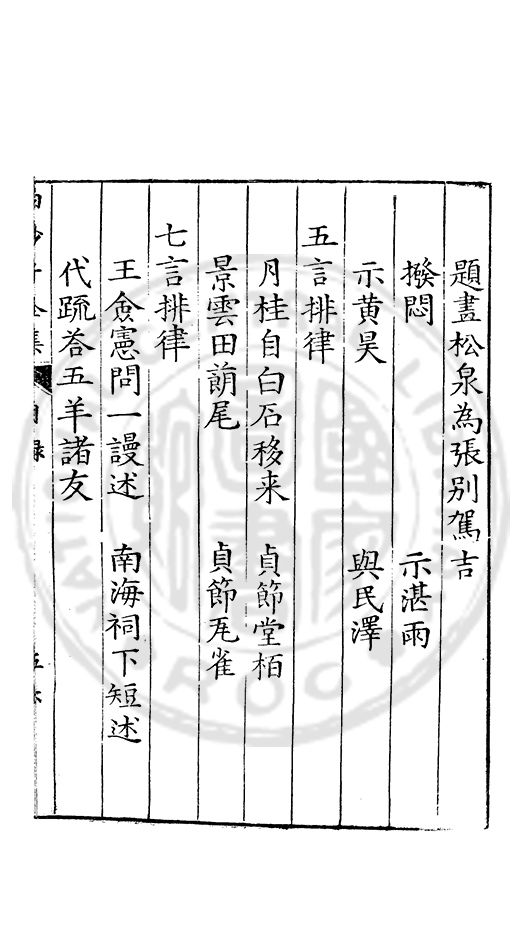 題畫松泉為張別駕吉
撥悶 示湛雨
示黃昊 與民澤
五言排律
月桂自白石移来 貞節堂栢
景雲田蒴尾 貞節瓦雀
七言排律
王僉憲問一謾述 南海祠下短述
代䟽荅五羊諸友
全集 目録